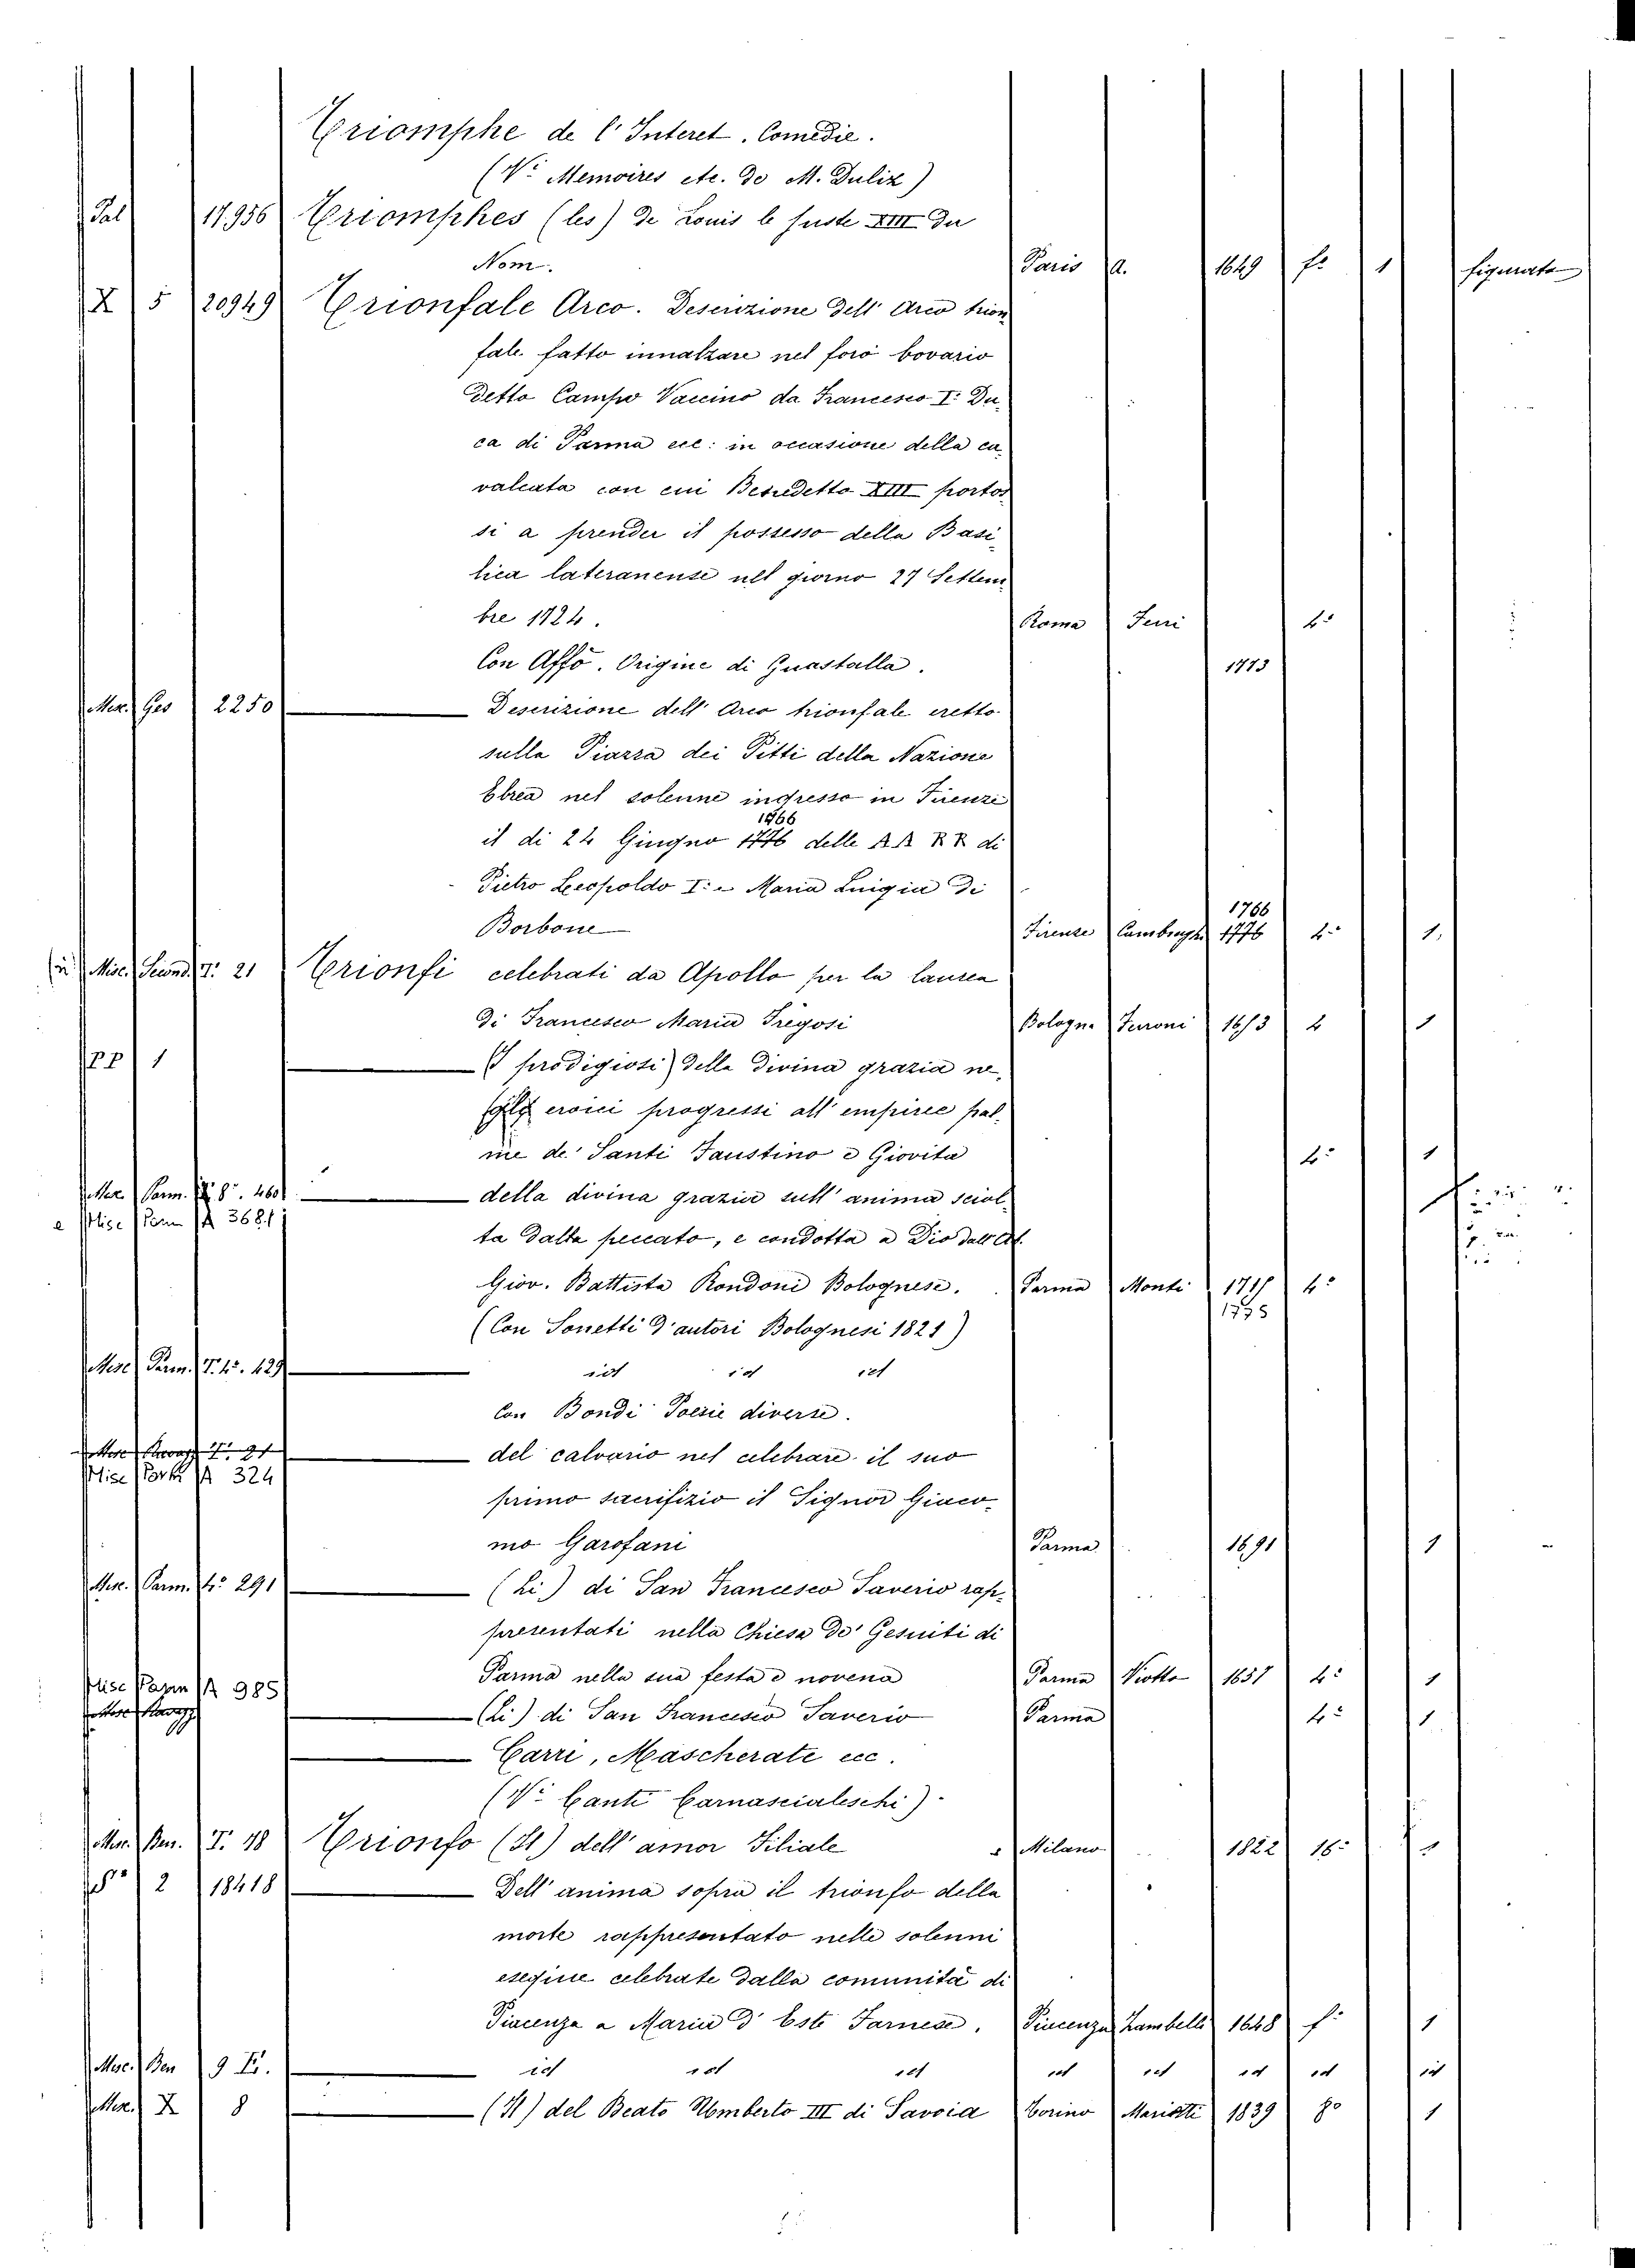 Triomphe de l'Interet. Comedie.
(Vi Memoires etc. de M. Duliz)
Pal 17.956 Triomphes (les) de Louis le juste XIII du
Nom. Paris a. 1649 fo 1 figurato
X 5 20949 Trionfale Arco. Descrizione dell' Arco trion
fale fatto innalzare nel foro bovario
detto Campo Vaccino da Francesco I: Du
ca di Parma ecc: in occasione della ca
valcata con cui Benedetto XIII portos
si a prender il possesso della Basi
lica lateranense nel giorno 27 Settem
bre 1724. Roma 4o
Con Affò. Origine di Guastalla. 1773
2250 Descrizione dell' Arco trionfale eretto
sulla Piazza dei Pitti della Nazione
Ebrea nel solenne ingresso in Firenze
1766
il di 24 Giugno 1776 delle AA RR di
Pietro Leopoldo I: e Maria Luigia di
1766
Borbone Firenze 1776 4o 1.
Misc. Second. T. 21 Trionfi celebrati da Apollo per la laurea
di Francesco Maria Fregosi Bologna 4 1
PP 1 (I prodigiosi) della divina grazia ne,
gli eroici progressi all' empiree pal.
me de' Santi Faustino e Giovita 4o 1
Parm. 8o. 460 della divina grazia sull' anima sciol
e Misc Parm A 3681
ta dalla peccato, e condotta a Dio dall'Ab.
Giov. Battista Rondoni Bolognese. Parma Monti 1717 4o
1775
(Con Sonetti d'autori Bolognesi 1821)
Misc Parm. T. 4o. 429 id id id
Con Bondi Poesie diverse.
del calvario nel celebrare il suo
Misc A 324
primo sacrifizio il Signor Giaco
mo Garofani Parma 1691 1
Parm. 4o 291 (Li) di San Francesco Saverio rap
presentati nella Chiesa de' Gesuiti di
Parma nella sua festa e novena Parma Viotto 1657 4o 1
Misc Parm A 985
(Li) di San Francesco Saverio Parma 4o 1
Carri, Mascherate ecc.
(Vi Canti Carnascialeschi)
Ben. T. 18 Trionfo (Il) dell' amor Filiale Milano 1822 16o 1
2 18418 Dell' anima sopra il trionfo della
morte rappresentato nelle solenni
esequie celebrate dalla comunità di
Piacenza a Maria d' Este Farnese. Piacenza Zambelli 1648 fo 1
Misc. Ben 9 id id id id id id id id
X 8 (Il) del Beato Umberto III di Savoia Torino Marietti 1839 8o 1